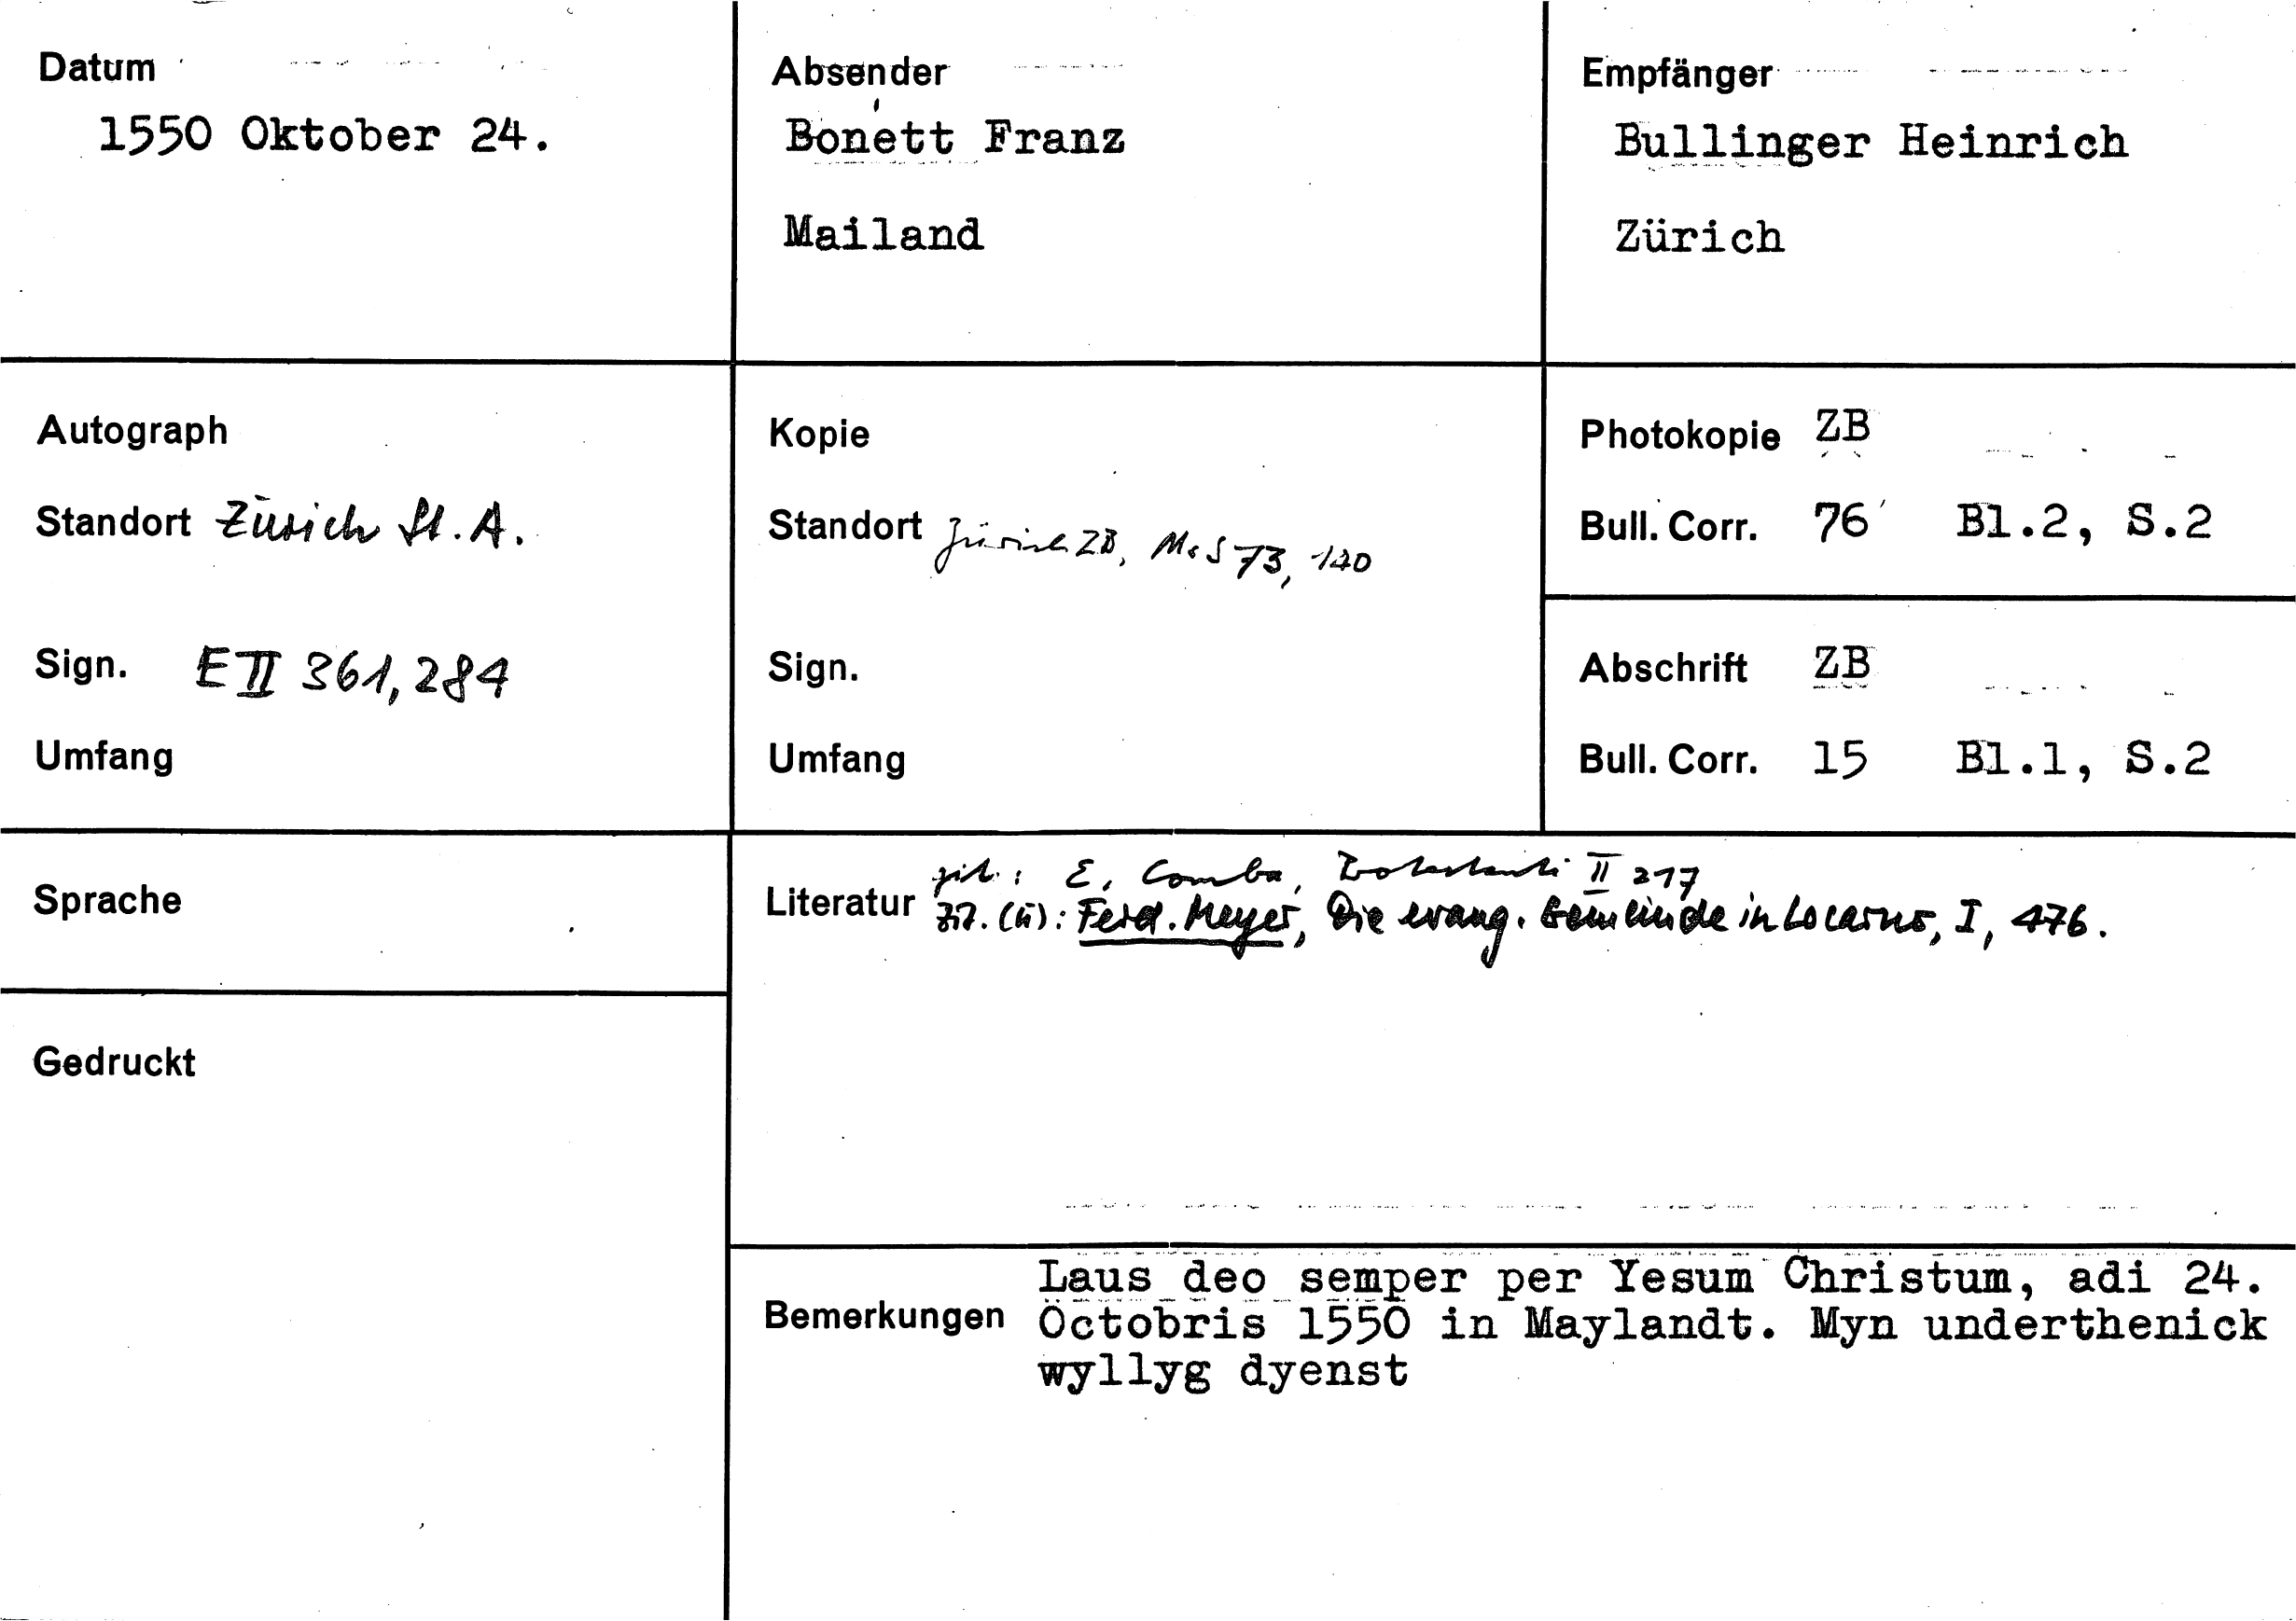 Datum
1550 Oktober 24.
Absender
Bonett Franz
Mailand
Empfänger
Bullinger Heinrich
Zürich
Autograph
Standort Zürich St. A.
Sign. E II 361, 284
Umfang
Kopie
Standort Zürich ZB, Ms S 73, 140
Sign.
Umfang
Photokopie ZB
Bull. Corr. 76 Bl.2, S.2
Abschrift ZB
Bull. Corr. 15 Bl.1, S.2
Sprache
Gedruckt
Literatur
zit.: E. Comba, Protestanti II 217
zit. (ü): Ferd. Meyer, Die evang. Gemeinde in Locarno, I, 476.
Bemerkungen
Laus deo semper per Yesum Christum, adi 24.
Octobris 1550 in Maylandt. Myn underthenick
wyllyg dyenst